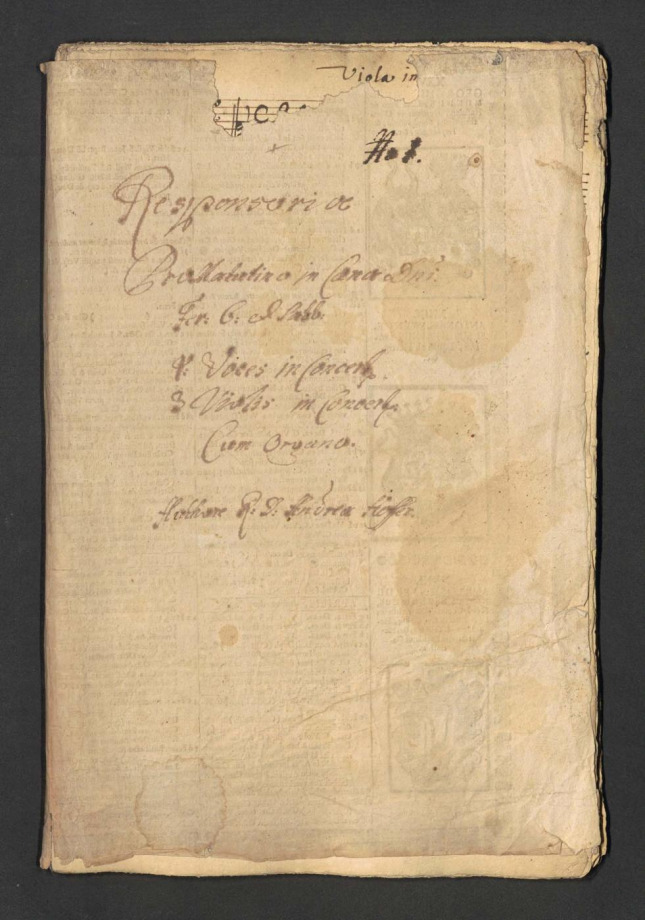 Viola in
No: 1.
Responsoria
Pro Matutino in Cæna Dni.
Fer: 6: et Sabb:
4: Voces in Concert.
3 Violis in Concert.
Cum Organo.
Authore R: D: Andrea Hofer.